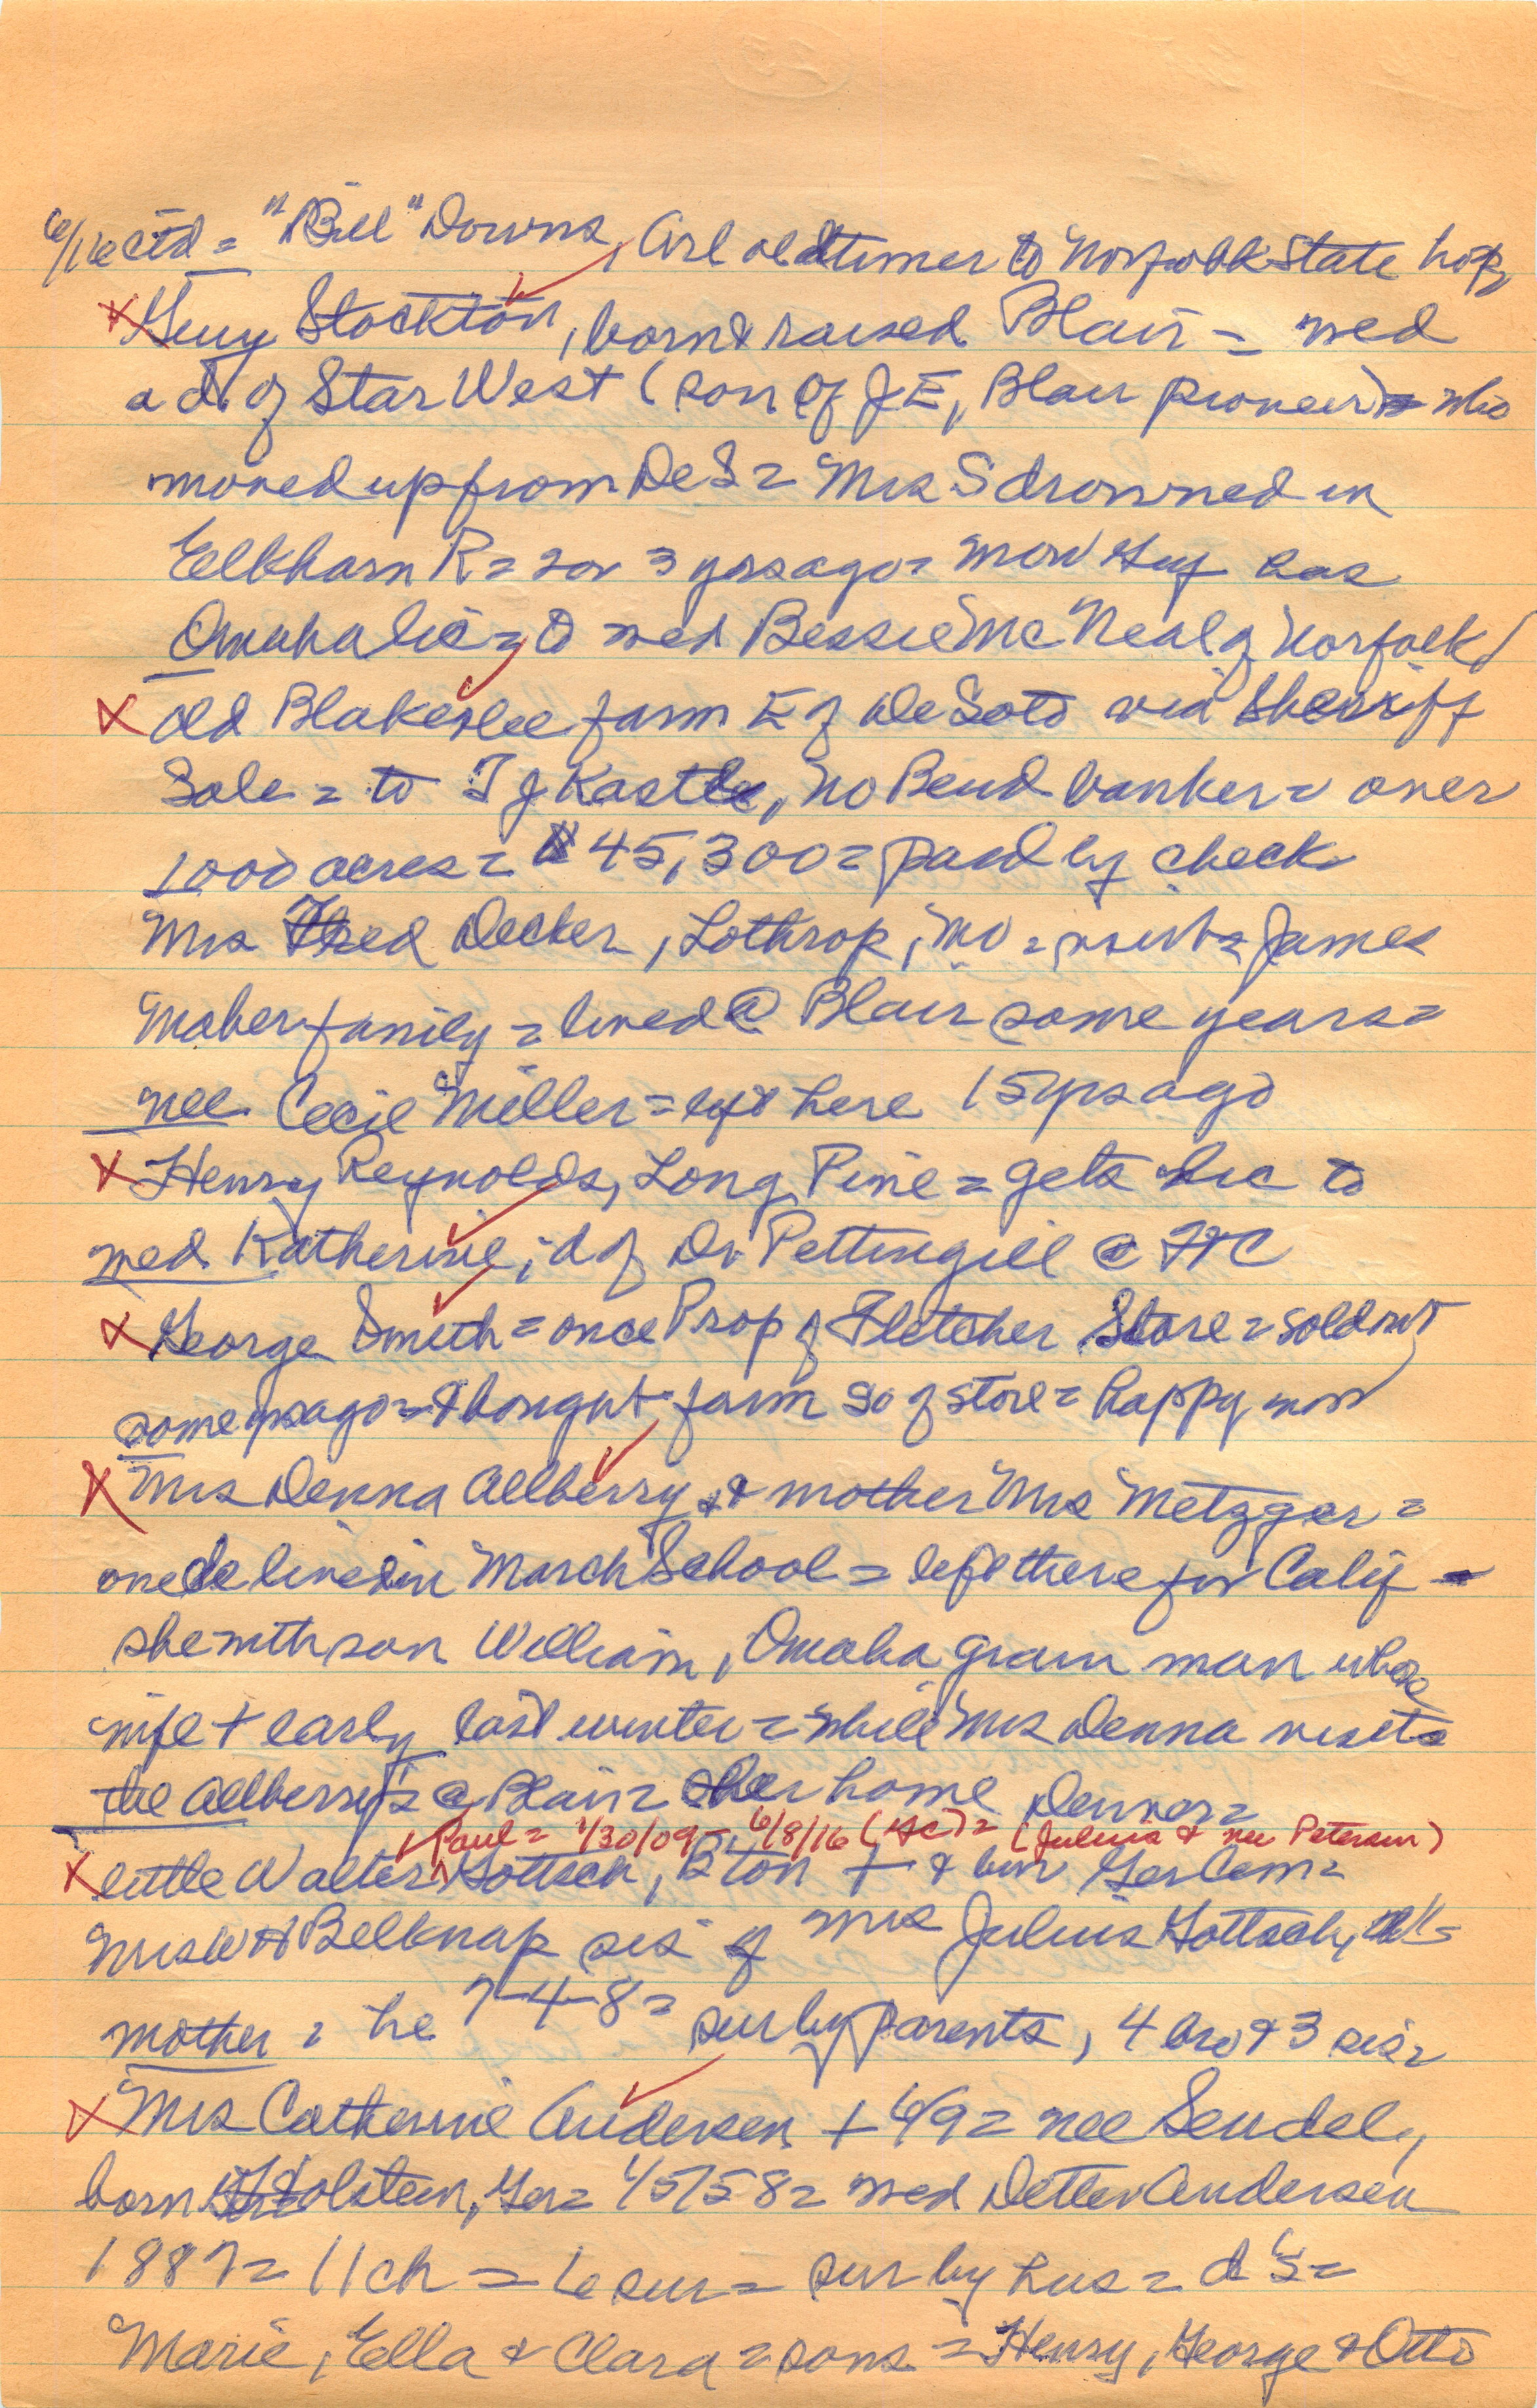 6/16 ctd = "Bill" Downs, Arl oldtimer to Norfolk State hosp
X Guy Stockton, born & raised Blair = med
a d. of Star West (son of JE, Blair pioneer) = who
moved up from DeS = Mrs S drowned in
Elkhorn R = 2 or 3 yrs ago = now Guy has
Omaha lic = to med Bessie McNeal of Norfolk
X old Blakeslee farm E of DeSoto via Sheriff
Sale = to T J Kastle, No Bend banker = over
1000 acres = $45,300 = paid by check
Mrs Fred Decker, Lothrop, Mo = visit = James
Maher family = lived @ Blair some years =
nee Cecil Miller = left here 15 yrs ago
X Henry Reynolds, Long Pine = gets lic to
med Katherine, d of Dr Pettingill @ FtC
X George Smith = once Prop of Fletcher Store = sold out
some yrs ago = & bought farm so of store = happy now
X Mrs Denna Allberry & mother Mrs Metzger =
once lived in March School = left there for Calif =
she with son William, Omaha grain man whose
wife + early last winter = while Mrs Denna visits
the Allberry's @ Blair = her home Denver =
Paul = 1/30/09 - 6/8/16 (HC) = (Julius & nee Petersen)
X little Walter Gottsch, B ton + & bur Ger Cem =
Mrs W H Belknap sis of Mrs Julius Gottsch,
mother = he 7-4-8 = sur by parents, 4 bro & 3 sis =
X Mrs Catherine Andersen + 6/9 = nee Sendel,
born Holstein, Ger = 1/5/58 = med Detlev Andersen
1887 = 11 ch = 6 sur = sur by hus = d's =
Marie, Ella & Clara = sons = Henry, George & Otto